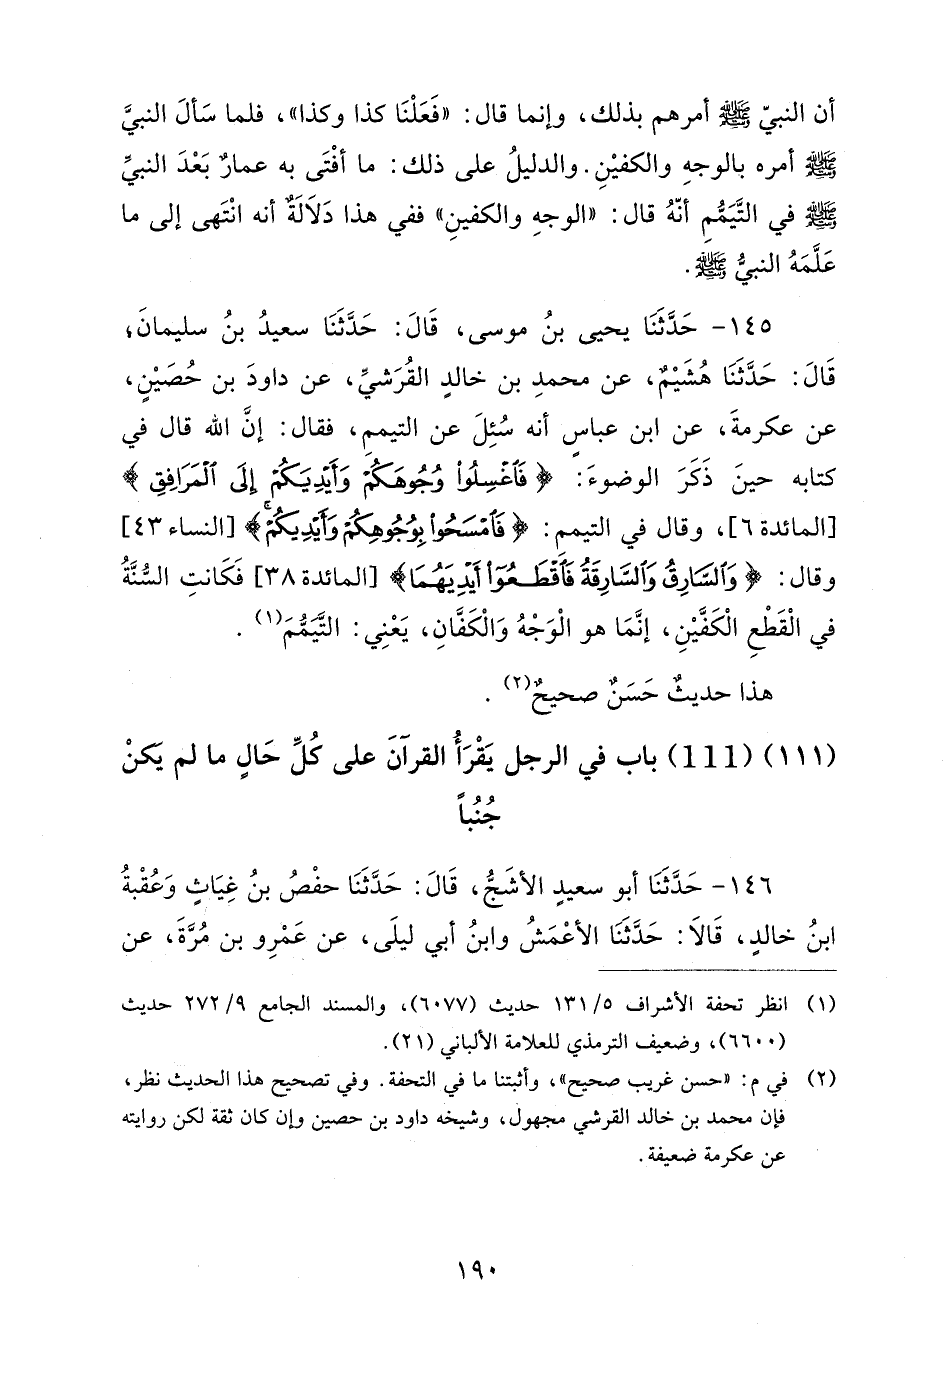 أن النبيّ ﷺ أمرهم بذلك، وإنما قال: «فَعَلْنَا كذا وكذا»، فلما سَألَ النبيَّ
ﷺ أمره بالوجهِ والكفيْنِ. والدليلُ على ذلك: ما أفْتَى به عمارٌ بَعْدَ النبيِّ
ﷺ في التَّيَمُّمِ أنّهُ قال: «الوجهِ والكفينِ» ففي هذا دَلَالَةٌ أنه انْتَهى إلى ما
عَلَّمَهُ النبيُّ ﷺ.
١٤٥- حَدَّثَنَا يحيى بنُ موسى، قَالَ: حَدَّثَنَا سعيدُ بنُ سليمانَ،
قَالَ: حَدَّثَنَا هُشَيْمٌ، عن محمدِ بن خالدٍ القُرَشيِّ، عن داودَ بن حُصَيْنٍ،
عن عكرمةَ، عن ابن عباسٍ أنه سُئِلَ عن التيممِ، فقال: إنَّ الله قال في
كتابه حينَ ذَكَرَ الوضوءَ: ﴿ فَٱغْسِلُوا۟ وُجُوهَكُمْ وَأَيْدِيَكُمْ إِلَى ٱلْمَرَافِقِ ﴾
[المائدة ٦]، وقال في التيمم: ﴿ فَٱمْسَحُوا۟ بِوُجُوهِكُمْ وَأَيْدِيكُمْ ۚ﴾ [النساء ٤٣]
وقال: ﴿ وَٱلسَّارِقُ وَٱلسَّارِقَةُ فَٱقْطَعُوٓا۟ أَيْدِيَهُمَا﴾ [المائدة ٣٨] فَكَانتِ السُّنَّةُ
في الْقَطْعِ الْكَفَّيْنِ، إنَّمَا هو الْوَجْهُ وَالْكَفَّانِ، يَعْنِي: التَّيَمُّمَ(١) .
هذا حديثٌ حَسَنٌ صحيحٌ(٢) .
(١١١) (111) باب في الرجل يَقْرَأُ القرآنَ على كُلِّ حَالٍ ما لم يَكنْ
جُنُباً
١٤٦- حَدَّثَنَا أبو سعيدٍ الأشجُّ، قَالَ: حَدَّثَنَا حفْصُ بنُ غِيَاثٍ وَعُقْبةُ
ابنُ خالدٍ، قَالَا: حَدَّثَنَا الأعْمَشُ وابنُ أبي ليلَى، عن عَمْرِو بن مُرَّةَ، عن
(١) انظر تحفة الأشراف ٥/ ١٣١ حديث (٦٠٧٧)، والمسند الجامع ٩/ ٢٧٢ حديث
(٦٦٠٠)، وضعيف الترمذي للعلامة الألباني (٢١).
(٢) في م: «حسن غريب صحيح»، وأثبتنا ما في التحفة. وفي تصحيح هذا الحديث نظر،
فإن محمد بن خالد القرشي مجهول، وشيخه داود بن حصين وإن كان ثقة لكن روايته
عن عكرمة ضعيفة.
١٩٠